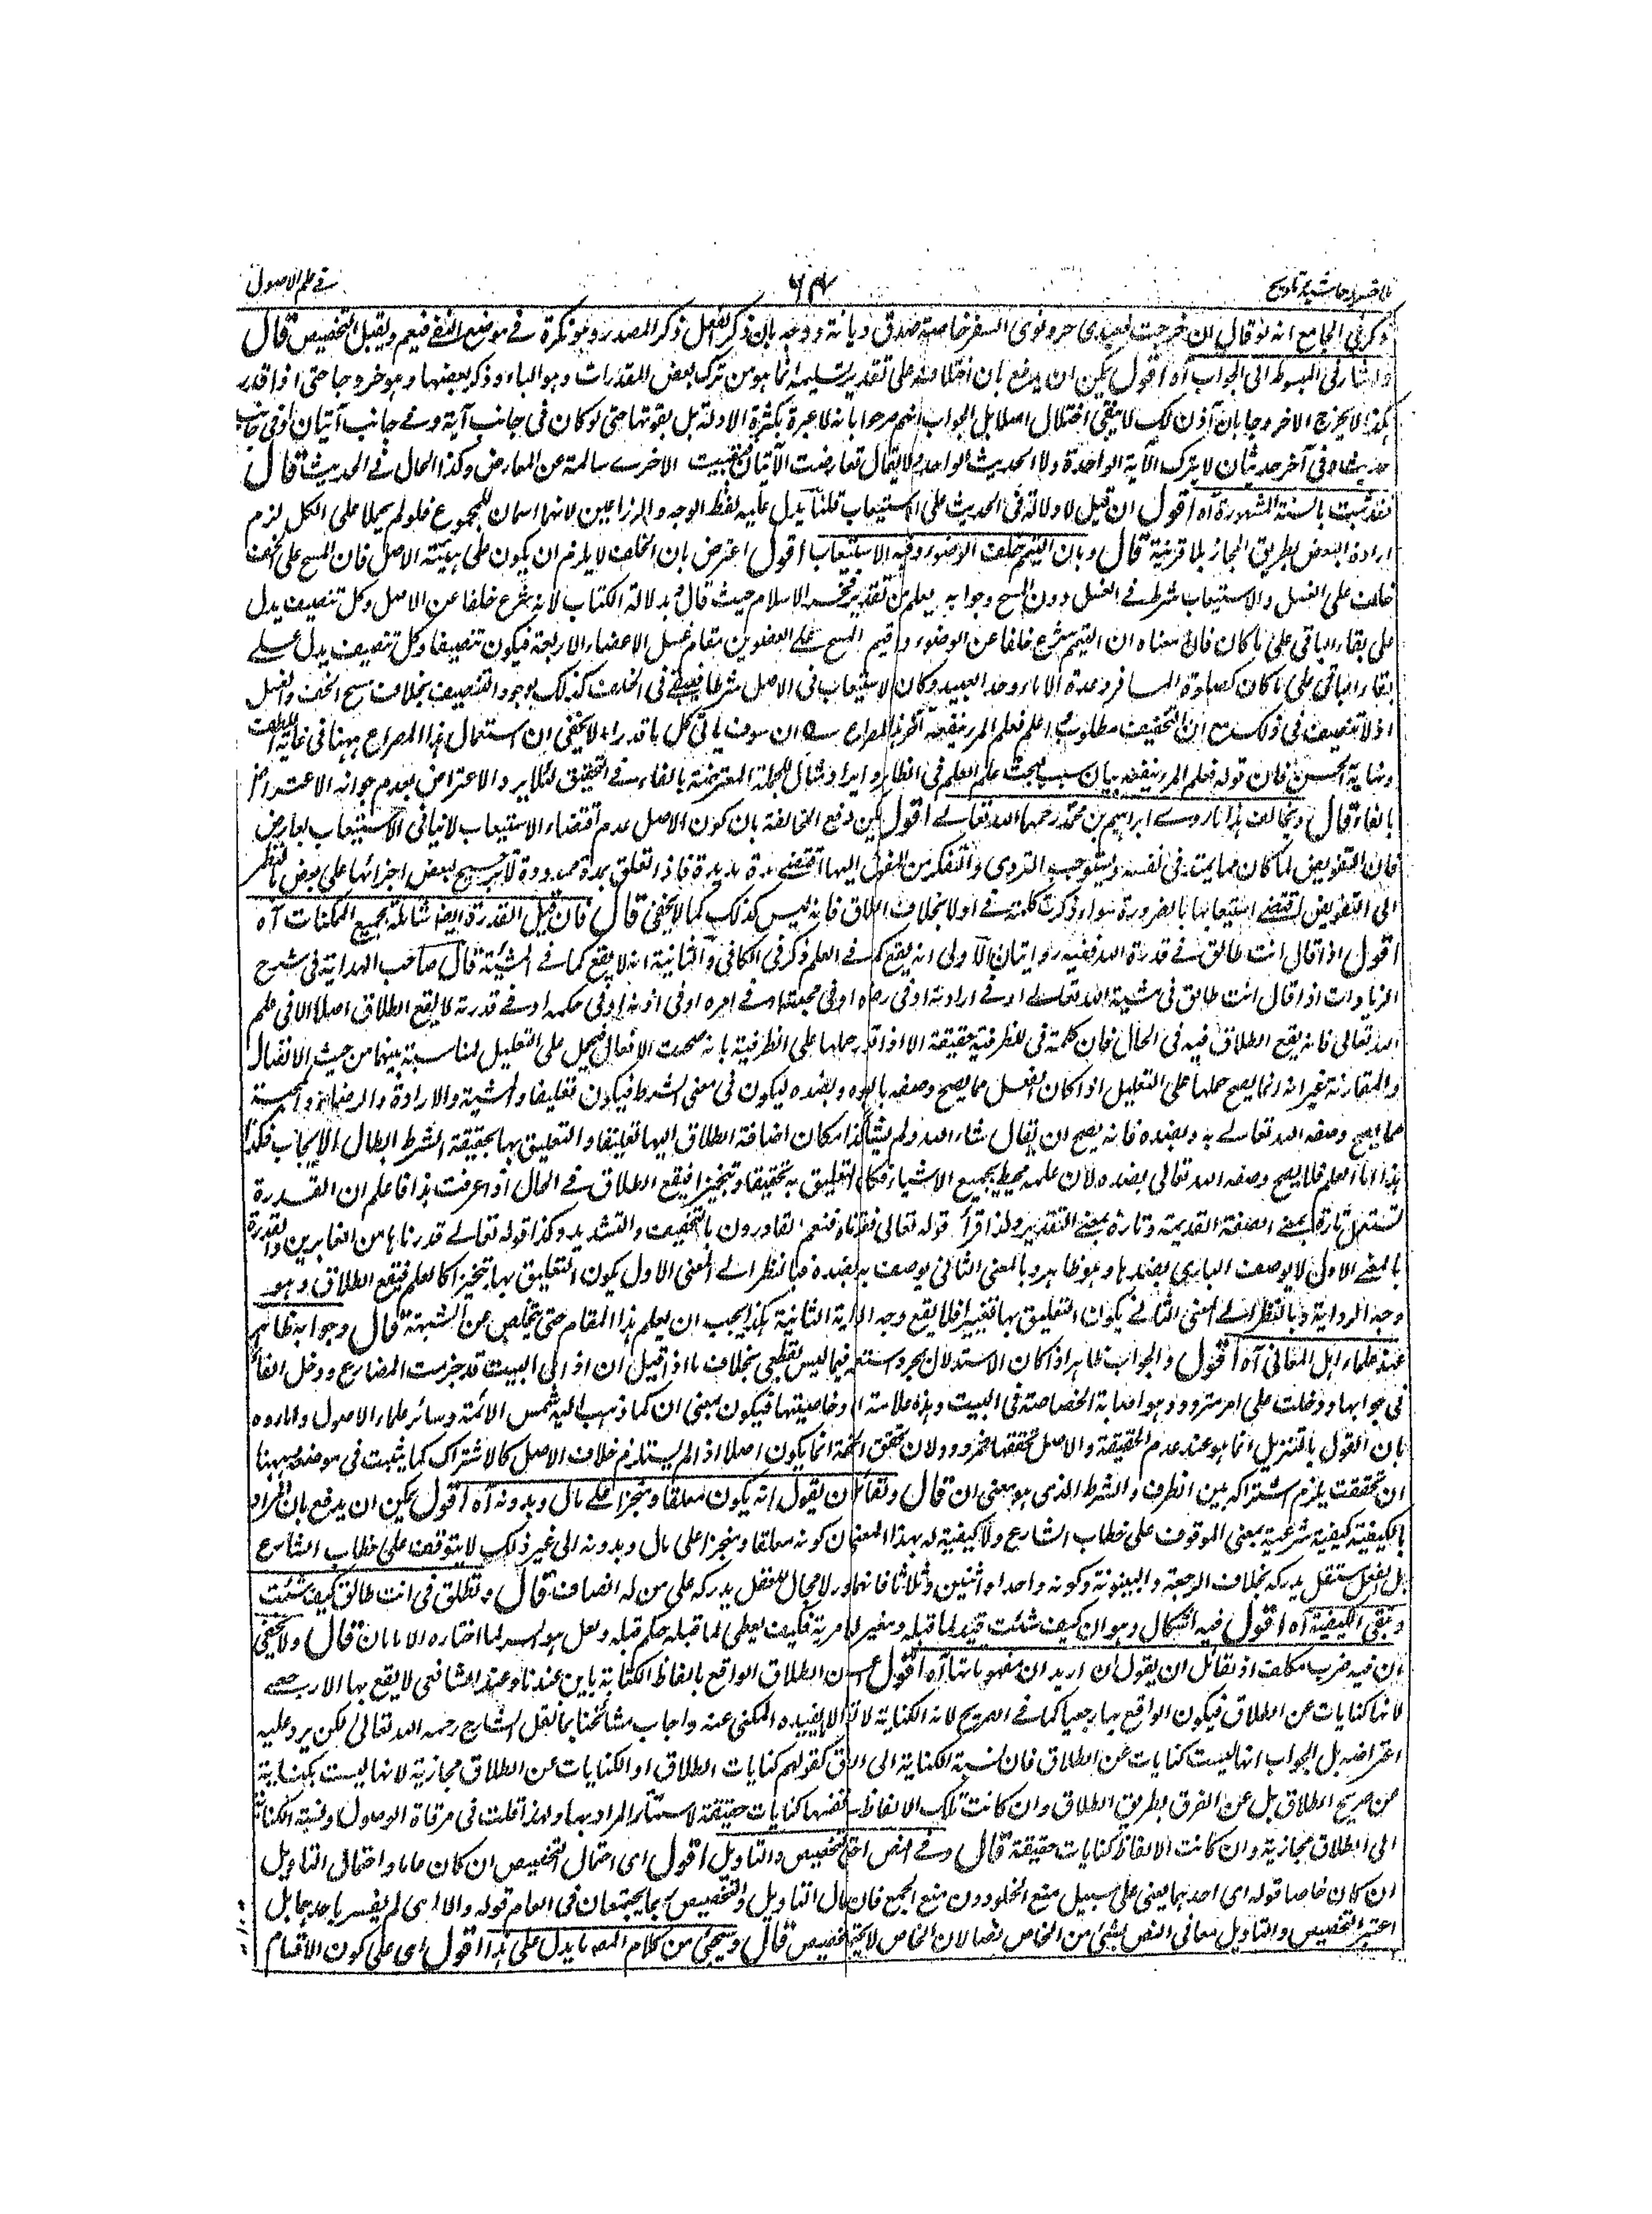 ملا خسرو حاشیہ تلویح ۶۴ فے علم الاصول
ذکر فی الجامع انه لو قال ان خرجت فعبدی حر و نوی السفر خاصة صدق دیانة و وجه بان ذکر الفعل ذکر المصدر و هو نکرة فے موضع النفے فیعم و یقبل التخصیص قال
و اشار فی المبسوط الی الجواب آه اقول یمکن ان یدفع بان اختلاله علی تقدیر تسلیمه انما هو من ترک بعض المقدرات و هو الباء و ذکر بعضها و هو خروجا حتی اذا قدر
هکذا الا یخرج الا خروجا بان آذن لک لا یبقی اختلال اصلا بل الجواب انهم صرحوا بانه لا عبرة بکثرة الادلة بل بقوتها حتی لو کان فی جانب آیة و فے جانب آیتان او فی جانب
حدیث و فی آخر حدیثان لا یترک الآیة الواحدة و لا الحدیث الواحد و لا یقال تعارضت الآیتان فبقیت الاخرے سالمة عن المعارض و کذا الحال فے الحدیث قال
فقد ثبت بالسنة المشهورة آه اقول ان قیل لا دلالة فی الحدیث علی الاستیعاب قلنا یدل علیه لفظ الوجه و الذراعین لانهما اسمان للمجموع فلو لم یحملا علی الکل لزم
ارادة البعض بطریق المجاز بلا قرینة قال و بان التیمم خلف الوضوء و فیه الاستیعاب اقول اعترض بان الخلف لا یلزم ان یکون علی هیئة الاصل فان المسح علی الخف
خلف علی الغسل و الاستیعاب شرط فے الغسل دون المسح و جوابه یعلم من تقدیر فخر الاسلام حیث قال بدلالة الکتاب لانه شرع خلفا عن الاصل و کل تنصیف یدل
علی بقاء الباقی علی ما کان فان معناه ان التیمم شرع خلفا عن الوضوء و اقیم المسح علے العضوین مقام غسل الاعضاء الاربعة فیکون تنصیفا و کل تنصیف یدل علے
بقاء الباقی علی ما کان کصلوة المسافر و عدة الاماء و حد العبید و کان الاستیعاب فی الاصل شرطا فیبقے فی الخلف کذلک لوجود التنصیف بخلاف مسح الخف و الغسل
اذ لا تنصیف فی ذلک مع ان التخفیف مطلوب اعلم فعلم المرء ینفعه آخر المصراع ع ان سوف یاتی کل ما قدرا و لا یخفی ان استعمال هذا المصراع ههنا فی غایة اللطف
و نهایة الحسن فان قوله فعلم المرء ینفعه بیان سبب مبحث علم العلم فی الظاهر و ایراد مثال للجملة المعترضة بالفاء فے التحقیق لئلا یرد الاعتراض بعدم جوازه الاعتراض
بالفاء قال و یخالف هذا ما روے ابراهیم بن محمد رحمهما الله تعالے اقول یمکن دفع المخالفة بان کون الاصل عدم اقتضاء الاستیعاب لا ینافی الاستیعاب لعارض
فان التفویض لما کان مما یمتد فی نفسه و یستوجب التروی و التفکر من المفوض الیها اقتضے مدة مدیدة فاذا تعلق بمدة محدودة لا یترجح بعض اجزائها علی بعض بالنظر
الی التفویض اقتضے استیعابها بالضرورة سواء ذکرت کلمة فے او لا بخلاف الطلاق فانه لیس کذلک کما لا یخفی قال فان قیل القدرة ایضا شاملة لجمیع الممکنات آه
اقول اذا قال انت طالق فے قدرة الله ففیه روایتان الاولی انه یقع کما فے العلم ذکر فی الکافی و الثانیة انه لا یقع کما فے المشیئة قال صاحب الهدایة فی شرح
الزیادات اذا قال انت طالق فی مشیة الله تعالے او فے ارادته او فی رضاه او فی محبته او فے امره او فی اذنه او فی حکمه او فے قدرته لا یقع الطلاق اصلا الا فی علم
الله تعالی فانه یقع الطلاق فیه فی الحال فان کلمة فی للظرفیة حقیقة الا اذا تعذر حملها علی الظرفیة بانه صحبت الافعال فیحمل علی التعلیل لمناسبة بینهما من حیث الاتصال
و المقارنة غیر انه انما یصح حملها علی التعلیل اذا کان الفعل مما یصح وصفه بالوجود و بضده لیکون فی معنی الشرط فیکون تعلیقا و المشیة و الارادة و الرضاء و المحبة
مما یصح وصف الله تعالے به و بضده فانه یصح ان یقال شاء الله و لم یشأ کذا فکان اضافة الطلاق الیها تعلیقا و التعلیق بها بحقیقة الشرط ابطال الایجاب فکذا
هذا اما العلم فلا یصح وصف الله تعالی بضده لان علمه محیط بجمیع الاشیاء فکان التعلیق به تحقیقا و تنجیزا فیقع الطلاق فے الحال اذا عرفت هذا فاعلم ان القدرة
تستعمل تارة بمعنے الصفة القدیمة و تارة بمعنے التقدیر و لذا قرأ قوله تعالی فقدرنا فنعم القادرون بالتخفیف و التشدید و کذا قوله تعالے قدرناها من الغابرین و القدرة
بالمعنے الاول لا یوصف الباری بضدها و هو ظاهر و بالمعنی الثانی یوصف به و بضده فبالنظر الے المعنی الاول یکون التعلیق بها تنجیزا کالعلم فیقع الطلاق و هو
وجه الروایة و بالنظر الے المعنی الثانے یکون التعلیق بها تغییرا فلا یقع وجه الروایة الثانیة هکذا یجب ان یعلم هذا المقام حتی یتخلص عن الشبهة قال و جوابه ظاهر
عند علماء اهل المعانی آه اقول و الجواب ظاهر اذا کان الاستدلال بمجرد استعماله فیما لیس بقطعی بخلاف ما اذا قیل ان اذا فی البیت قد جزمت المضارع و دخل الفاء
فی جوابها و دخلت علی امر متردد و هو اصابة الخصاصة فی البیت و هذه علامة ان و خاصیتها فیکون بمعنی ان کما ذهب الیه شمس الائمة و سائر علماء الاصول و اما رده
بان القول بالتنزیل انما هو عند عدم الحقیقة و الاصل تحققها فمردود لان تحقق الحقیقة انما یکون اصلا اذا لم یستلزم خلاف الاصل کالاشتراک کما یثبت فی موضعه و ههنا
ان تحققت یلزم اشتراکه بین الظرف و الشرط الذی هو بمعنی ان قال و لقائل ان یقول انه یکون معلقا و منجزا علے مال و بدونه آه اقول یمکن ان یدفع بان المراد
بالکیفیة کیفیة شرعیة بمعنی الموقوف علی خطاب الشارع و لا کیفیة له بهذا المعنی لان کونه معلقا و منجزا علی مال و بدونه الی غیر ذلک لا یتوقف علی خطاب الشارع
بل العقل مستقل یدرکه بخلاف الرجعة و البینونة و کونه واحدا و اثنین و ثلاثا فانها امور لا مجال للعقل یدرکه علی من له انصاف قال و تطلق فی انت طالق کیف شئت
و تبقی الکیفیة آه اقول فیه اشکال و هو ان کیف شئت قید لما قبله و مغیر له لا مریة فکیف یعطی لما قبله حکم قبله و لعل هو السر لما اختاره الامامان قال و لا یخفی
ان فیه ضرب تکلف اذ لقائل ان یقول ان ارید ان مفهوماتها آه اقول ان الطلاق الواقع بالفاظ الکنایة باین عندنا و عند الشافعی لا یقع بها الا رجعی
لانها کنایات عن الطلاق فیکون الواقع بها رجعیا کما فے الصریح لانه الکنایة لا تفید الا ما یفیده المکنی عنه و اجاب مشائخنا بما نقل الشارح رحمه الله تعالی لکن یرد علیه
اعتراضه بل الجواب انها لیست کنایات عن الطلاق فان نسبة الکنایة الی الطلاق کقولهم کنایات الطلاق او الکنایات عن الطلاق مجازیة لانها لیست بکنایة
عن صریح الطلاق بل عن الفرق بطریق الطلاق و ان کانت تلک الالفاظ بنفسها کنایات حقیقة لاستتار المراد بها و لهذا قلت فی مرقاة الوصول و نسبة الکنایة
الی الطلاق مجازیة و ان کانت الالفاظ کنایات حقیقة قال و فے النص احتمال التخصیص و التاویل اقول ای احتمال التخصیص ان کان عاما و احتمال التاویل
ان کان خاصا قوله ای احدهما یعنی علی سبیل منع الخلو دون منع الجمع فان احتمال التاویل و التخصیص ربما یجتمعان فی العام قوله و الا ای لم یفسر باحدهما بل
اعتبر التخصیص و التاویل معا فی النص لم یبق شئ من الخاص نصا لان الخاص لا یحتمل التخصیص قال و سیجئ من کلام المص ما یدل علی هذا اقول ای علی کون الاقسام